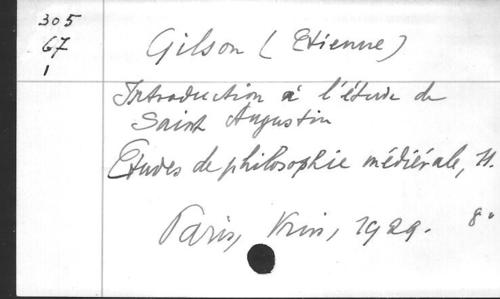 305
67
1
Gilson (Etienne)
Introduction à l'étude de
Saint Augustin
Etudes de philosophie médiévale, 11.
Paris, Vrin, 1929. 8°